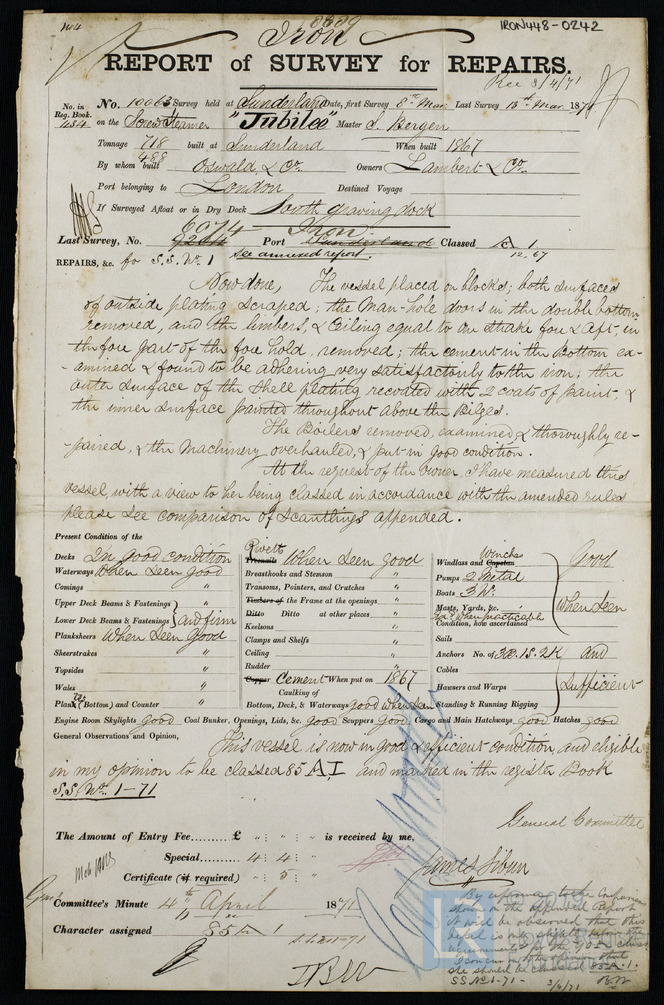 IRON448-0242
Iron
REPORT of SURVEY for REPAIRS.
Rec 3/4/71
No. in Reg. Book. 434
No. 10063 Survey held at Sunderland Date, first Survey 8th Mar. Last Survey 13th Mar. 1871
on the Screw Steamer "Jubilee" Master S. Bergen
Tonnage 718 488 built at Sunderland When built 1867
By whom built Oswald & Co. Owners Lambert & Co.
Port belonging to London Destined Voyage
If Surveyed Afloat or in Dry Dock South graving dock
6074 - Iron.
Last Survey, No. Port Sunderland Classed A 1 12.67
see annexed report.
REPAIRS, &c. for S.S. No. 1
Now done, The vessel placed on blocks; both surfaces
of outside plating scraped; the Man-hole doors in the double bottom
removed, and the limbers, & Ceiling equal to one strake fore & aft, in
the fore part of the fore hold, removed; the cement in the Bottom ex-
-amined & found to be adhering very satisfactorily to the iron; the
outer surface of the shell plating recoated with 2 coats of paint, &
the inner surface painted throughout above the Bilges.
The Boilers removed, examined, & thoroughly re-
-paired, & the Machinery overhauled, & put in good condition.
At the request of the owner, I have measured this
vessel, with a view to her being classed in accordance with the amended rules
please see comparison of Scantlings appended.
Present Condition of the
Decks In good condition
Waterways When seen good
Comings "
Upper Deck Beams & Fastenings
Lower Deck Beams & Fastenings } and firm
Planksheers When seen good
Sheerstrakes "
Topsides "
Wales "
Plank (Bottom) and Counter "
Rivets Treenails When seen good
Breasthooks and Stemson "
Transoms, Pointers, and Crutches "
Timbers of the Frame at the openings "
Ditto Ditto at other places "
Keelsons "
Clamps and Shelfs "
Ceiling "
Rudder "
Copper Cement When put on 1867
Caulking of
Bottom, Deck, & Waterways good when seen
Windlass and Capstan Winchs Good
Pumps 2 Metal
Boats 3 W.
Masts, Yards, &c. When seen
Condition, how ascertained when practicable
Sails
Anchors No. of 3B. 1S. 2K and
Cables
Hawsers and Warps Sufficient
Standing & Running Rigging
Engine Room Skylights good Coal Bunker, Openings, Lids, &c. good Scuppers good Cargo and Main Hatchways good Hatches good
General Observations and Opinion,
This vessel is now in good & efficient condition, and eligible
in my opinion to be classed 85 A.I. and marked in the register Book
S.S. No. 1-71
General Committee
The Amount of Entry Fee......... £ " : " : " is received by me,
Special......... 4 : 4 : "
Certificate (if required) " : 5 : "
James Sibun
Committee's Minute 4th April 1871
Character assigned 85 A
S.S. No 1-71
By reference to the Comparison
shown in the appended Report
it will be observed that this
vessel is only slightly below the
requirements of the 90 A class
I concur in the opinion that
she should be classed 85.A.1.
SS No 1-71- 3/4/71